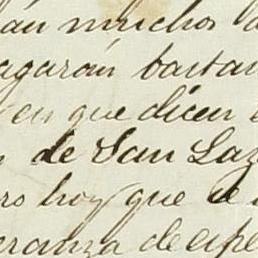 an muchos
agarán bastan
en que dicen
de San Laz
ro hoy que se
eranza de espe